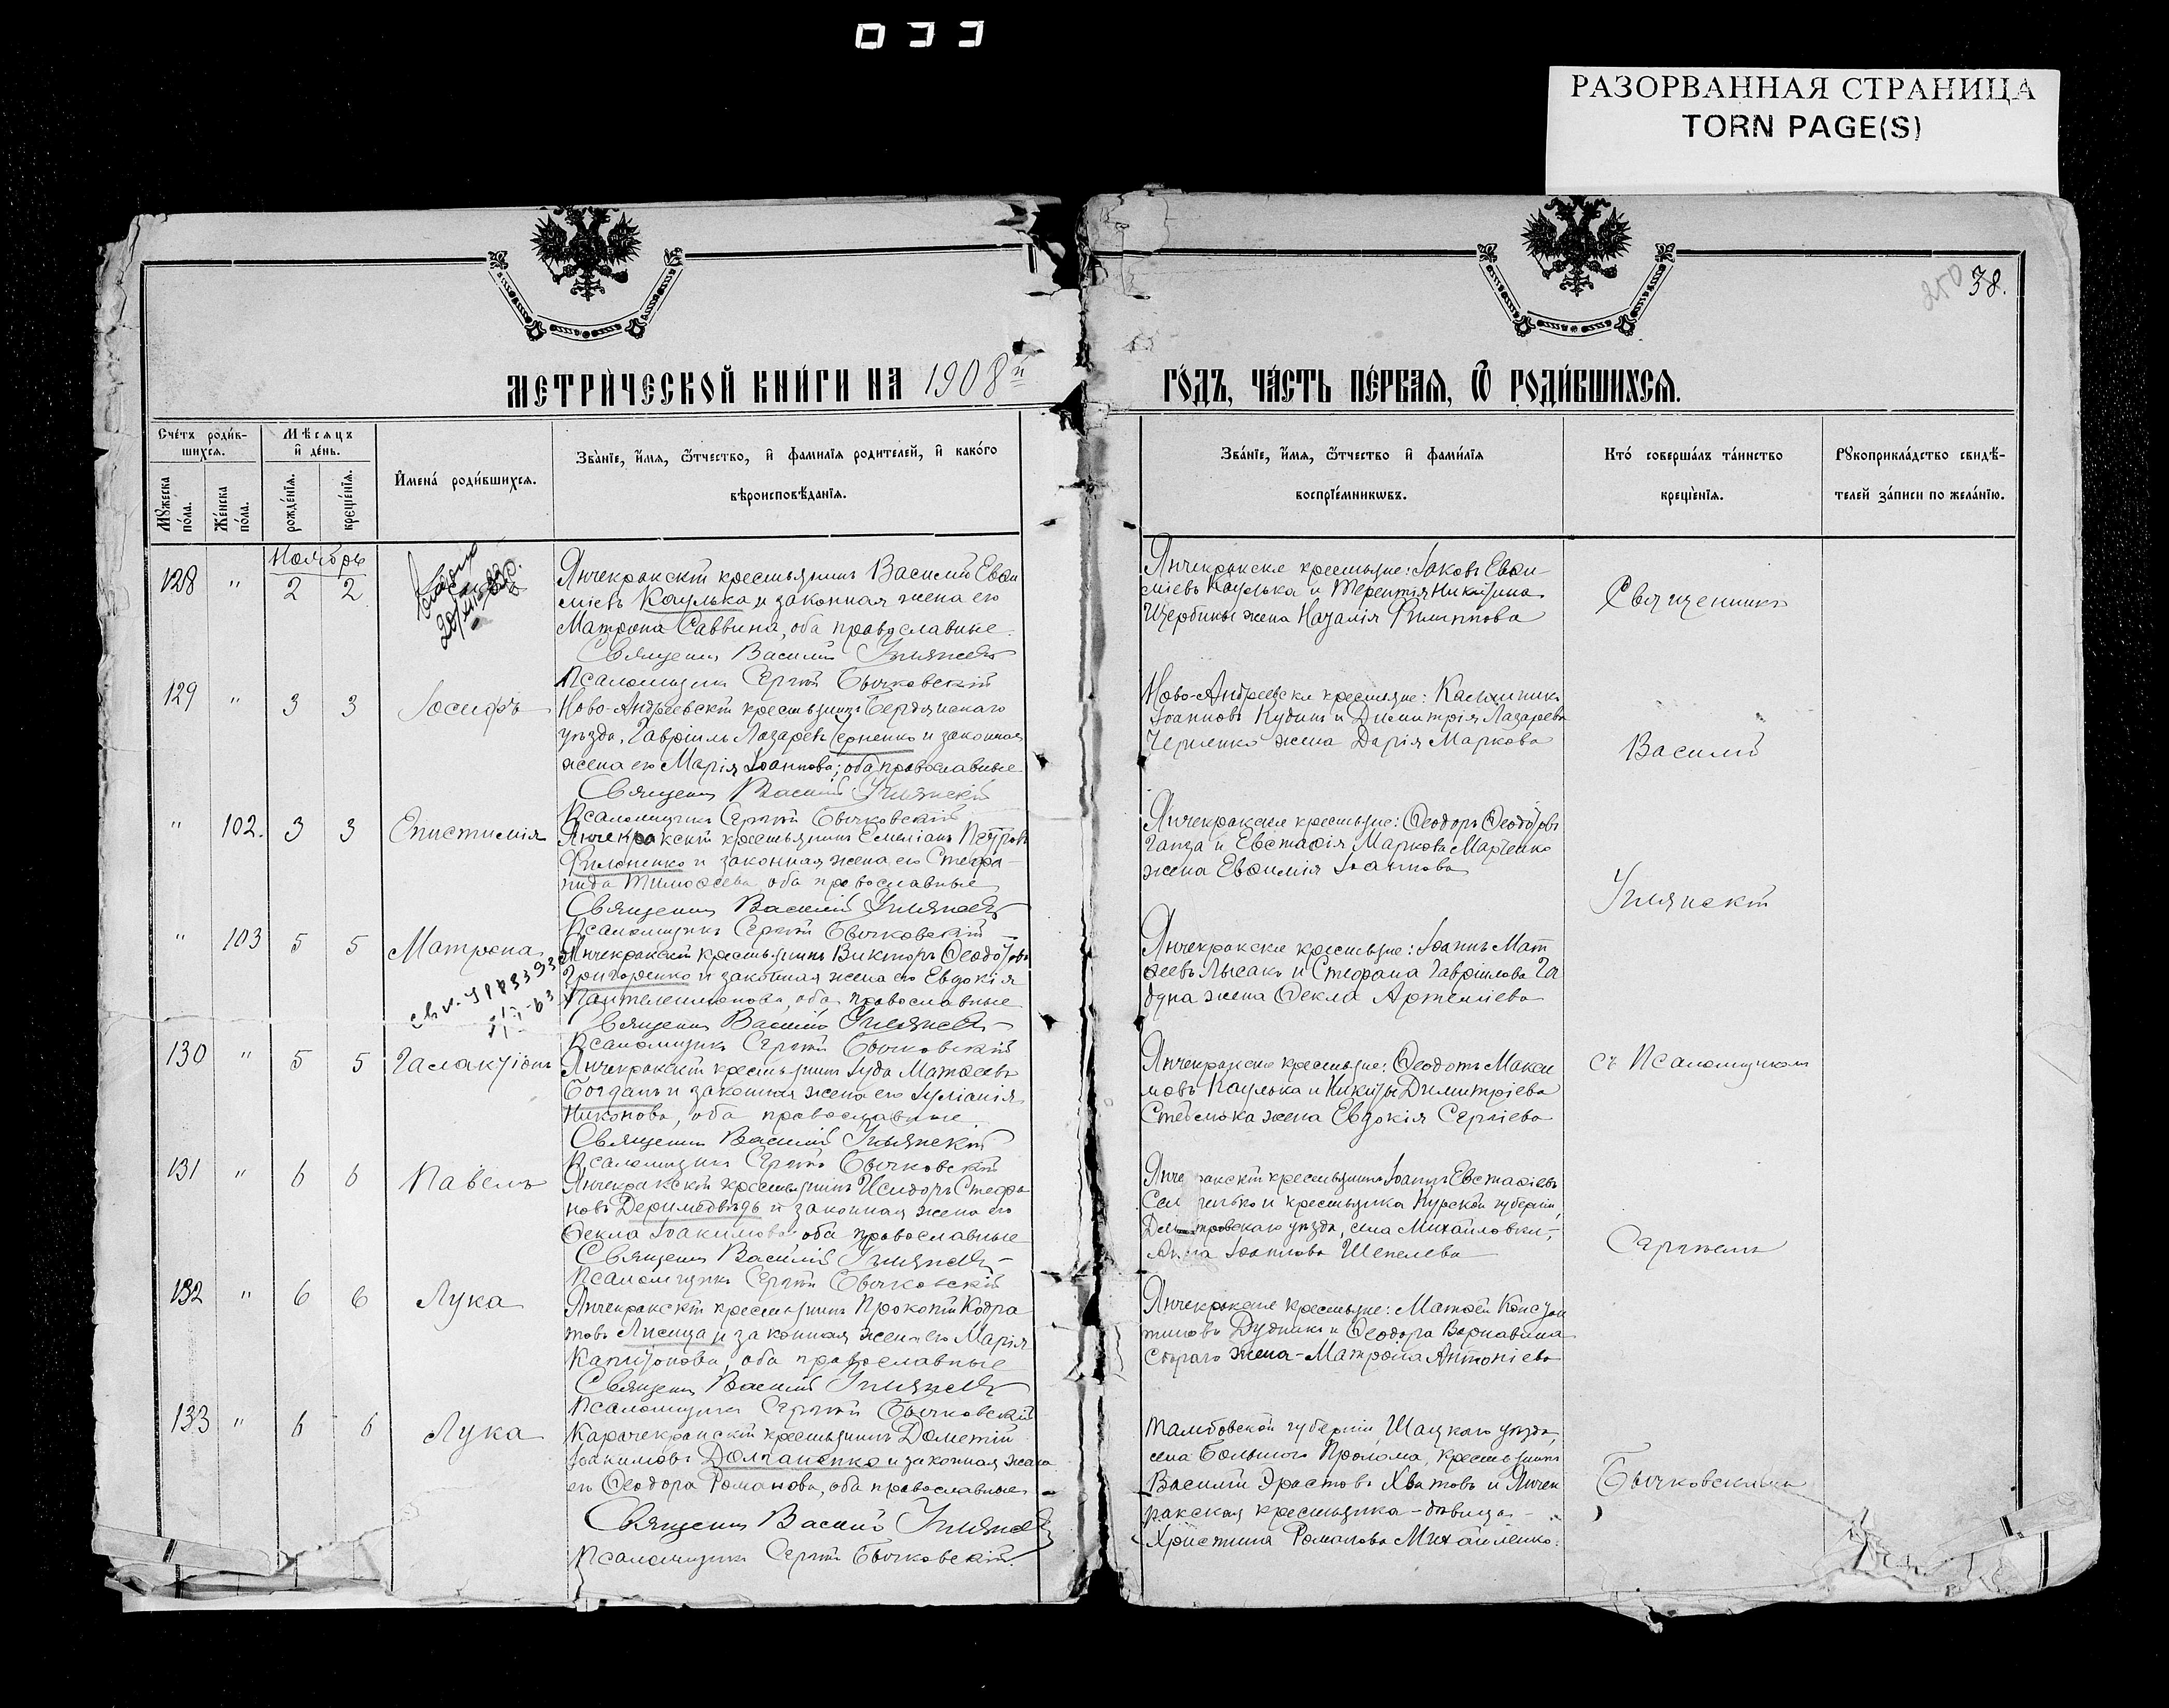 033
РАЗОРВАННАЯ СТРАНИЦА
TORN PAGE(S)
250 38.
МЕТРИ́ЧЕСКОЙ КНИ́ГИ НА 1908й ГО́ДЪ, ЧА́СТЬ ПЕ́РВАЯ, Ѿ РОДИ́ВШИХСЯ.
Сче́тъ роди́в-
шихся.
Мѣсяцъ
и де́нь.
Мꙋжеска по́ла.
Же́нска по́ла.
рожде́нія.
креще́нія.
Имена́ роди́вшихся.
Зва́нїе, и́мя, ѿтчество, и фамилїя родителей, и како́го
вѣроисповѣ́данїя.
Зва́нїе, и́мя, ѿтчество и фами́лїя
воспрїе́мниковъ.
Кто́ соверша́лъ та́инство
креще́нїя.
Рꙋкоприкла́дство свидѣ́-
телей за́писи по жела́нїю.
Ноябрь
128 " 2 2
Янчекракскій крестьянинъ Василій Евѳи
міевъ Каулька и законная жена его
Матрона Саввина, оба православные.
Священникъ Василій
Псаломщикъ Сергій Бычковскій
Янчекракскіе крестьяне: Іаковъ Евѳи-
міевъ Каулька и Терентія Никитина
Щербины жена Наталія Филиппова
Священникъ
129 " 3 3 Іосифъ
Ново-Андреевскій крестьянинъ Бердянскаго
уѣзда, Гавріилъ Лазаревъ Черненко и законная
жена его Марія Іоаннова; оба православные
Священникъ Василій
Псаломщикъ Сергій Бычковскій
Ново-Андреевскіе крестьяне: Каллиникъ
Іоанновъ Кудинъ и Димитрія Лазарева
Черненко жена Дарія Маркова
Василій
" 102. 3 3 Епистимія
Янчекракскій крестьянинъ Емеліанъ Петровъ
Филоненко и законная жена его Стефа-
нида Тимоѳеева, оба православные
Священникъ Василій
Псаломщикъ Сергій Бычковскій
Янчекракскіе крестьяне: Ѳеодоръ Ѳеодотовъ
Ганза и Евстаѳія Маркова Марченко
жена Евѳимія Іоаннова
" 103 5 5 Матрона
Янчекракскій крестьянинъ Викторъ Ѳеодотовъ
Григоренко и законная жена его Евдокія
Пантелеимонова, оба православные
Священникъ Василій
Псаломщикъ Сергій Бычковскій
Янчекракскіе крестьяне: Іоаннъ Мат
ѳеевъ Лысакъ и Стефана Гавріилова Га
дуна жена Ѳекла Артеміева
130 " 5 5 Галактіонъ
Янчекракскій крестьянинъ Іуда Матѳеевъ
Богданъ и законная жена его Іуліанія
Никонова, оба православные
Священникъ Василій
Псаломщикъ Сергій Бычковскій
Янчекракскіе крестьяне: Ѳеодотъ Макси
мовъ Каулька и Никиты Димитріева
жена Евдокія Сергіева
съ Псаломщикомъ
131 " 6 6 Павелъ
Янчекракскій крестьянинъ Исидоръ Стефа
новъ Деримедвѣдь и законная жена его
Ѳекла Іоакимова оба православные
Священникъ Василій
Псаломщикъ Сергій Бычковскій
Янче ракскій крестьянинъ Іоаннъ Евстаѳіевъ
и крестьянка Курской губерніи,
уѣзда, села Михайловки,-
Анна Іоаннова Шепелева
Сергіемъ
132 " 6 6 Лука
Янчекракскій крестьянинъ Прокопій Кодра
товъ Лисица и законная жена его Марія
Капитонова, оба православные
Священникъ Василій
Псаломщикъ Сергій Бычковскій
Янчекракскіе крестьяне: Матѳей Констан
тиновъ Дудникъ и Ѳеодора Варнавина
жена - Матрона Антоніева
133 " 6 6 Лука
Карачекракскій крестьянинъ Дометій
Іоакимовъ Долганенко и законная жена
его Ѳеодора Романова, оба православные.
Священникъ Василій
Псаломщикъ Сергій Бычковскій.
Тамбовской губерніи Шацкаго уѣзда,
села Большого Пролома, крестьянинъ
Василій Эрастовъ Хватовъ и Янчек
ракская крестьянка - дѣвица -
Христина Романова Михайленко.
Бычковскимъ